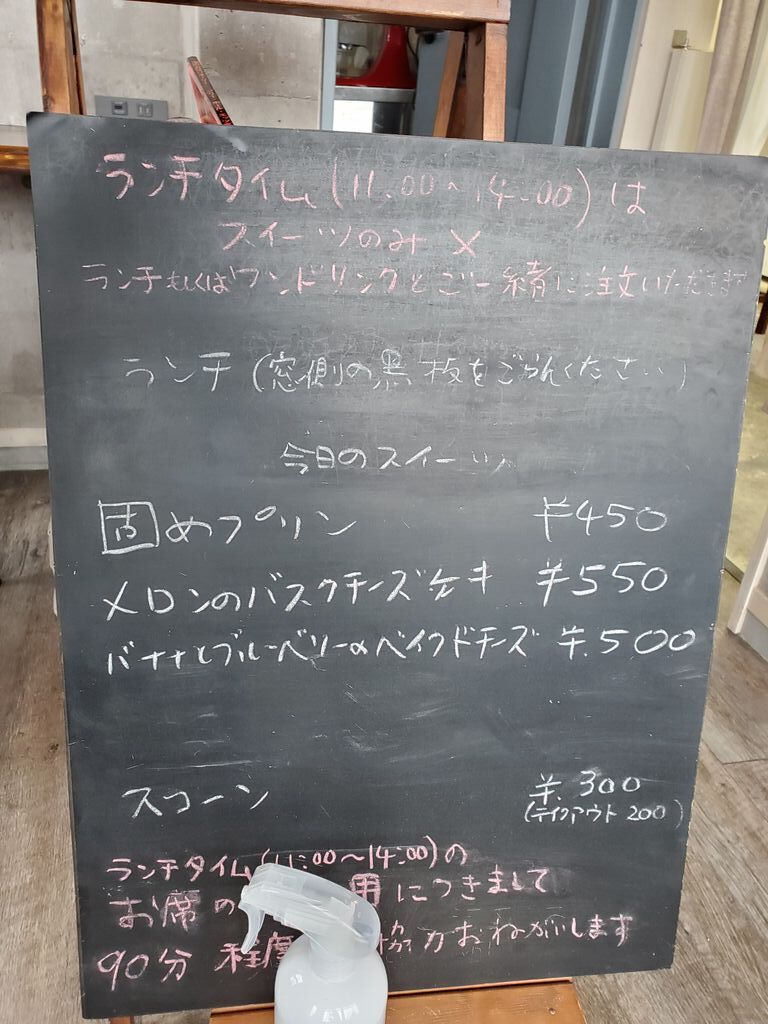 ランチタイム(11:00～14:00)は
スイーツのみ×
ランチもしくはワンドリンクとご一緒に注文いただきます
ランチ(窓側の黒板をごらんください)
今日のスイーツ
固めプリン ¥450
メロンのバスクチーズケーキ ¥550
バナナとブルーベリーのベイクドチーズ ¥.500
スコーン ¥.300
(テイクアウト 200)
ランチタイム(11:00～14:00)の
お席の 用につきまして
90分 程度 協力おねがいします